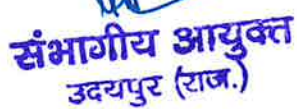 संभागीय आयुक्त
उदयपुर (राज.)